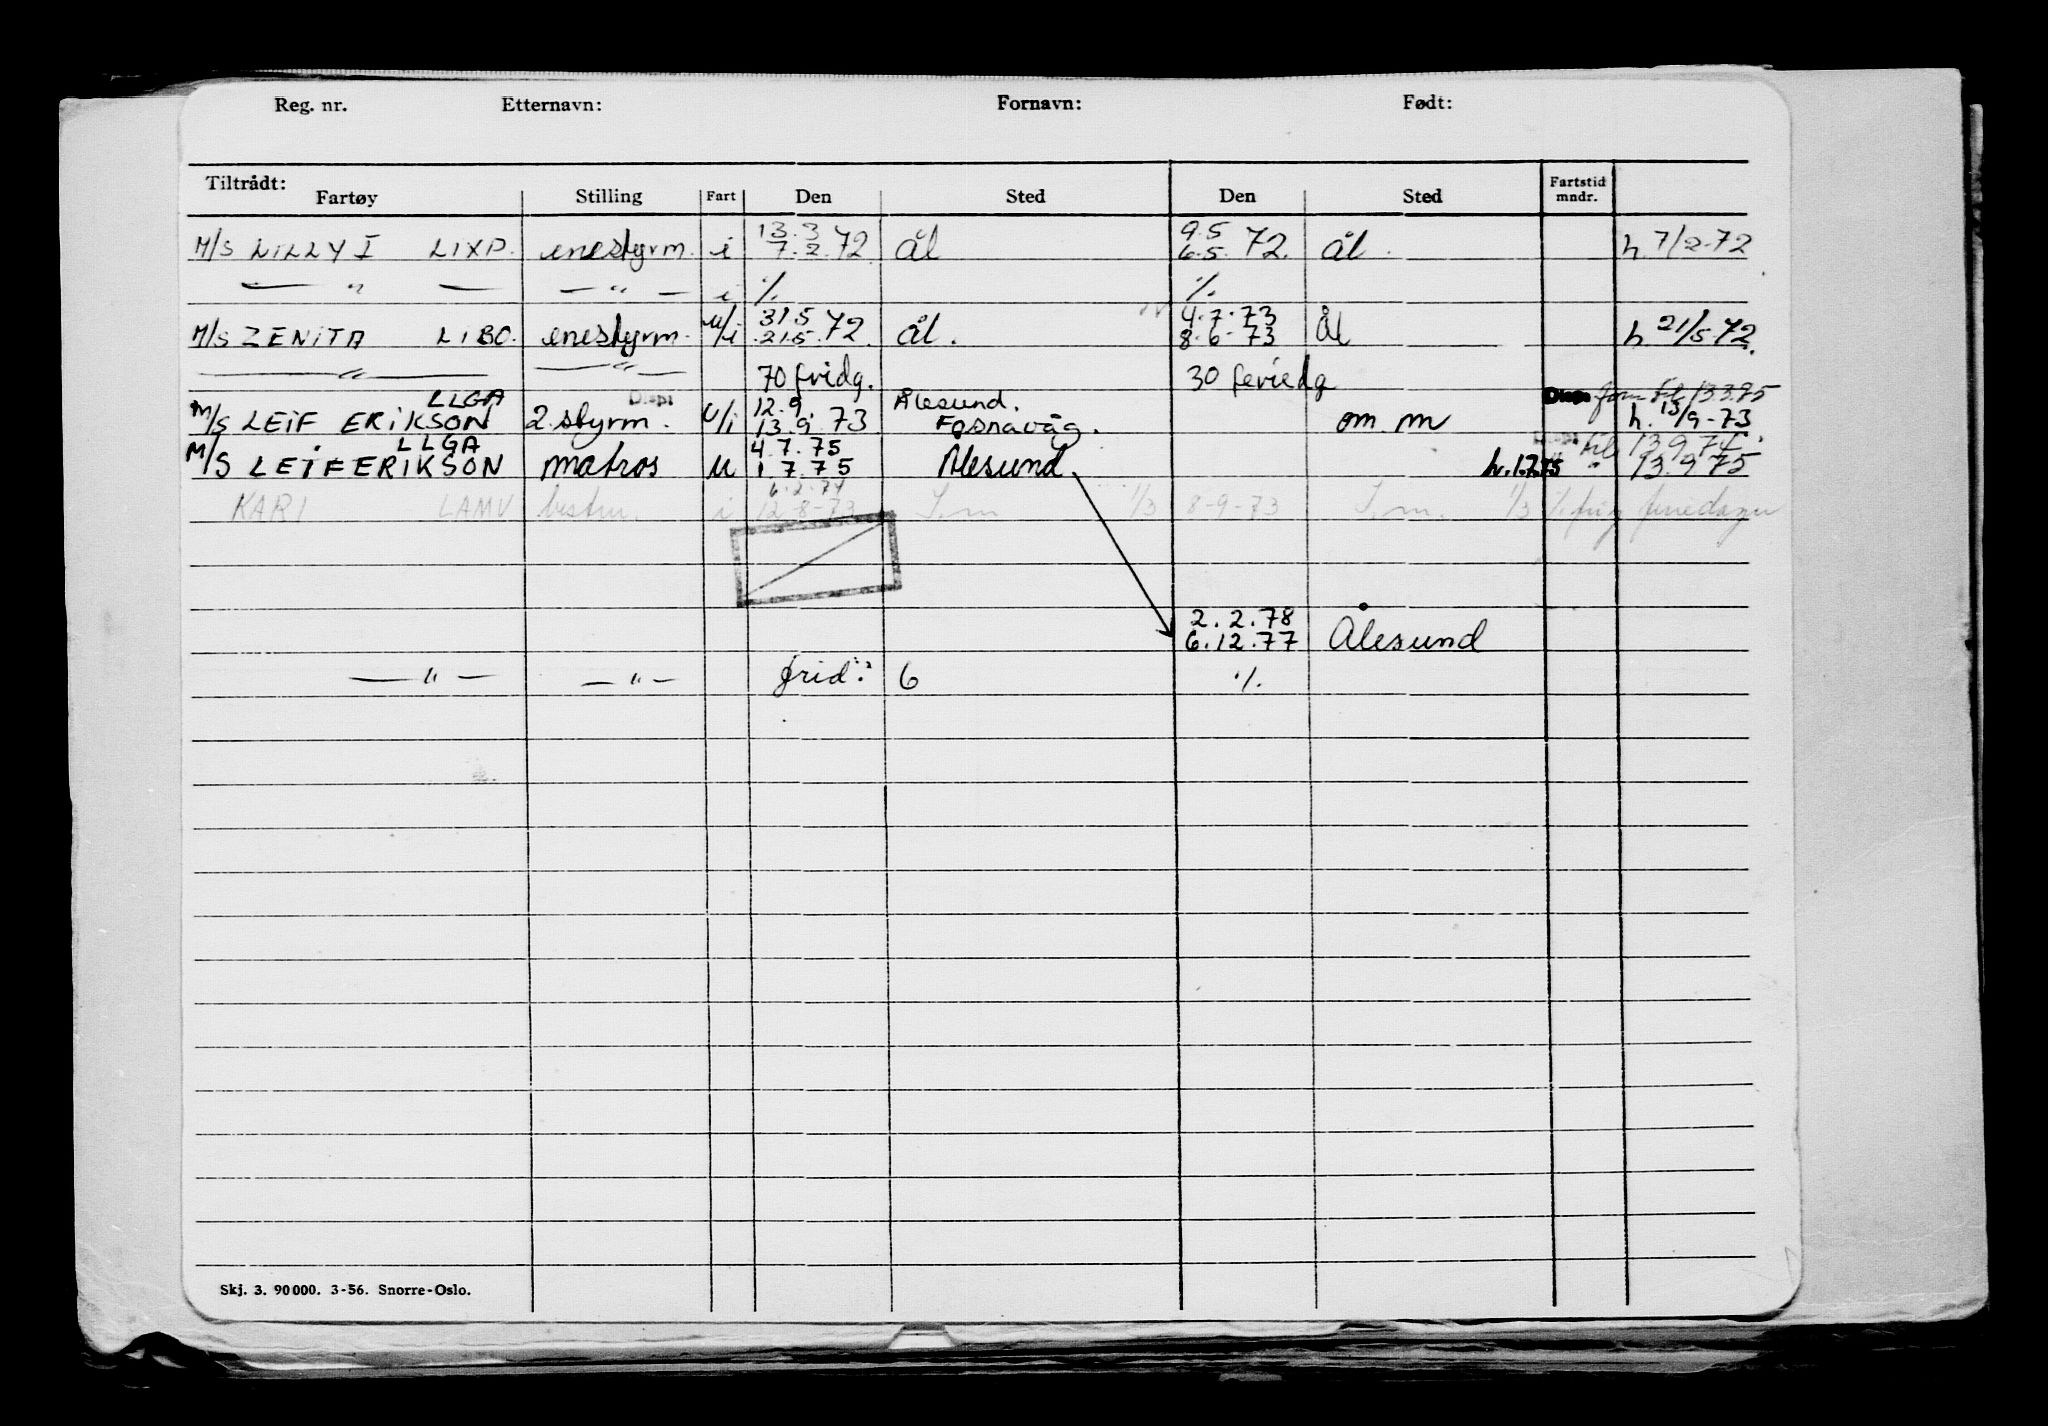 Reg. nr. Etternavn: Fornavn: Født:
Tiltrådt:
Fartøy Stilling Fart Den Sted Den Sted Fartstid mndr.
13.3 9.5
M/S LILLY I LIXP. enestyrm. i 7.2.72 ål 6.5.72. ål. h. 7/2-72
— " — — " — i % %
31.5 4.7.73
M/S ZENITA LIBO. enestyrm. u/i 21.5.72. ål. 8.6.73 Ål h. 21/5.72.
— " — — " — 70 fridg. 30 feriedg
LLGA Disp 12.9. Ålesund. Disp 13.3.75
M/S LEIF ERIKSON 2. styrm. u/i 13.9.73 Fosnavåg. om. m h. 13/9-73
LLGA 4.7.75 til 13.9.74.
M/S LEIF ERIKSON matros u 1.7.75 Ålesund h. 1.7.75 " 13.9.75
6.2.74
KARI LAMV bestm. i 12-8-73 S.m 1/3 8-9-73 S.m. 1/3
2.2.78
6.12.77 Ålesund
— " — — " — frid: 6 %
Skj. 3. 90000. 3-56. Snorre-Oslo.